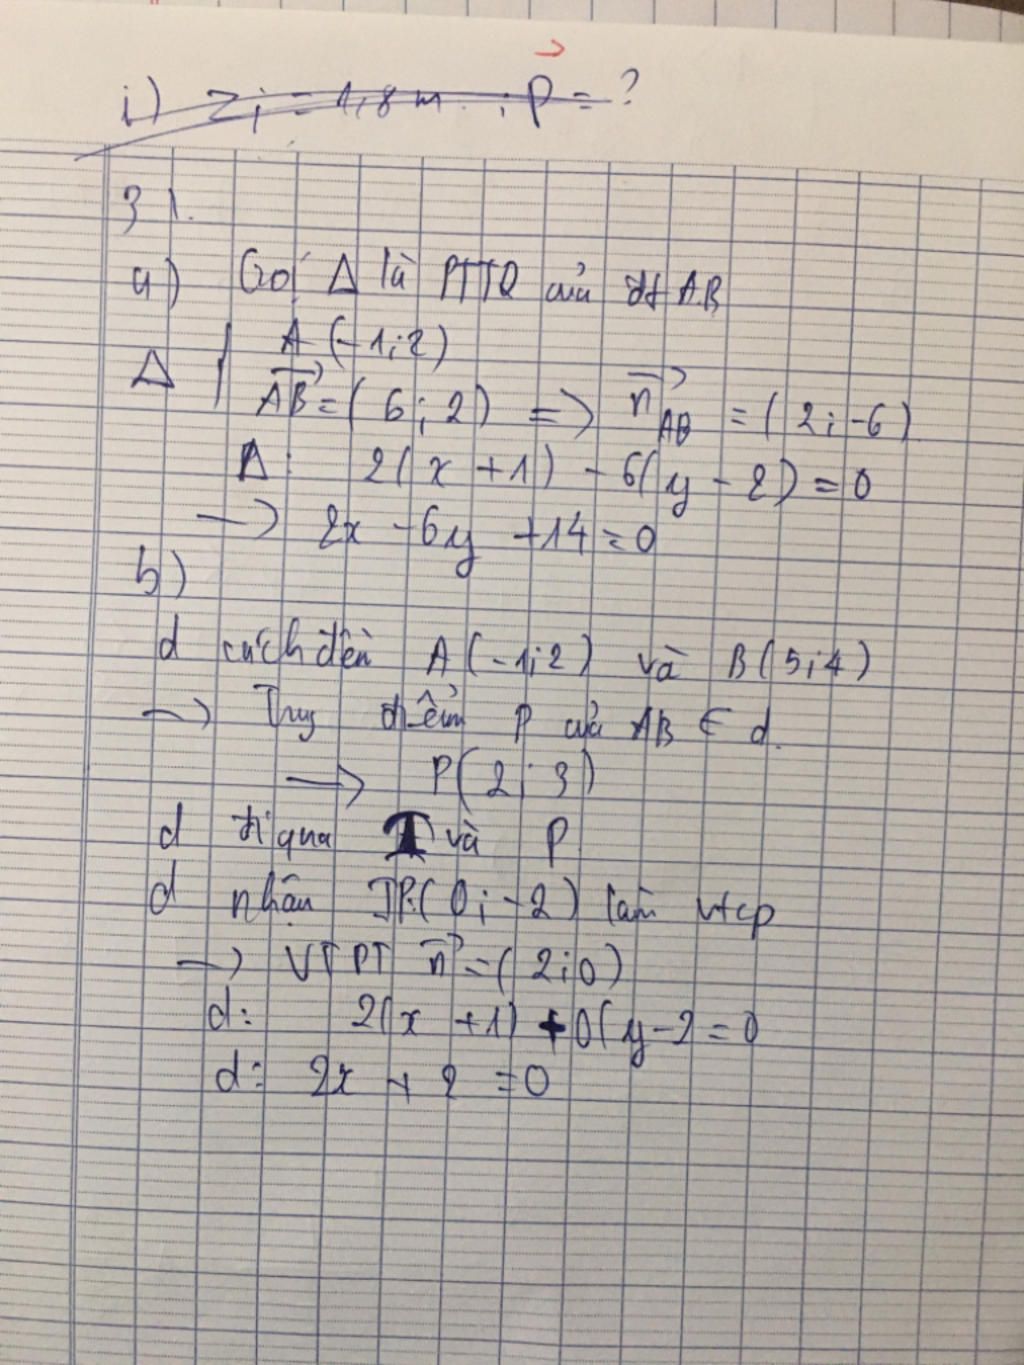 i) Zi = 1,8m ; P = ?
31.
a) Gọi Δ là PTTQ của đt AB
A (-1;2)
Δ { AB = ( 6 ; 2 ) => n AB = ( 2 ; -6 )
Δ : 2( x + 1 ) - 6( y - 2 ) = 0
-> 2x - 6y + 14 = 0
b)
d cách đều A (-1;2) và B( 5;4 )
-> Trug điểm P của AB ∈ d.
-> P( 2 ; 3 )
d đi qua I và P
d nhận IP( 0; -2 ) làm vtcp
-> VTPT n = ( 2;0 )
d: 2( x + 1 ) + 0( y - 2 = 0
d: 2x + 2 = 0